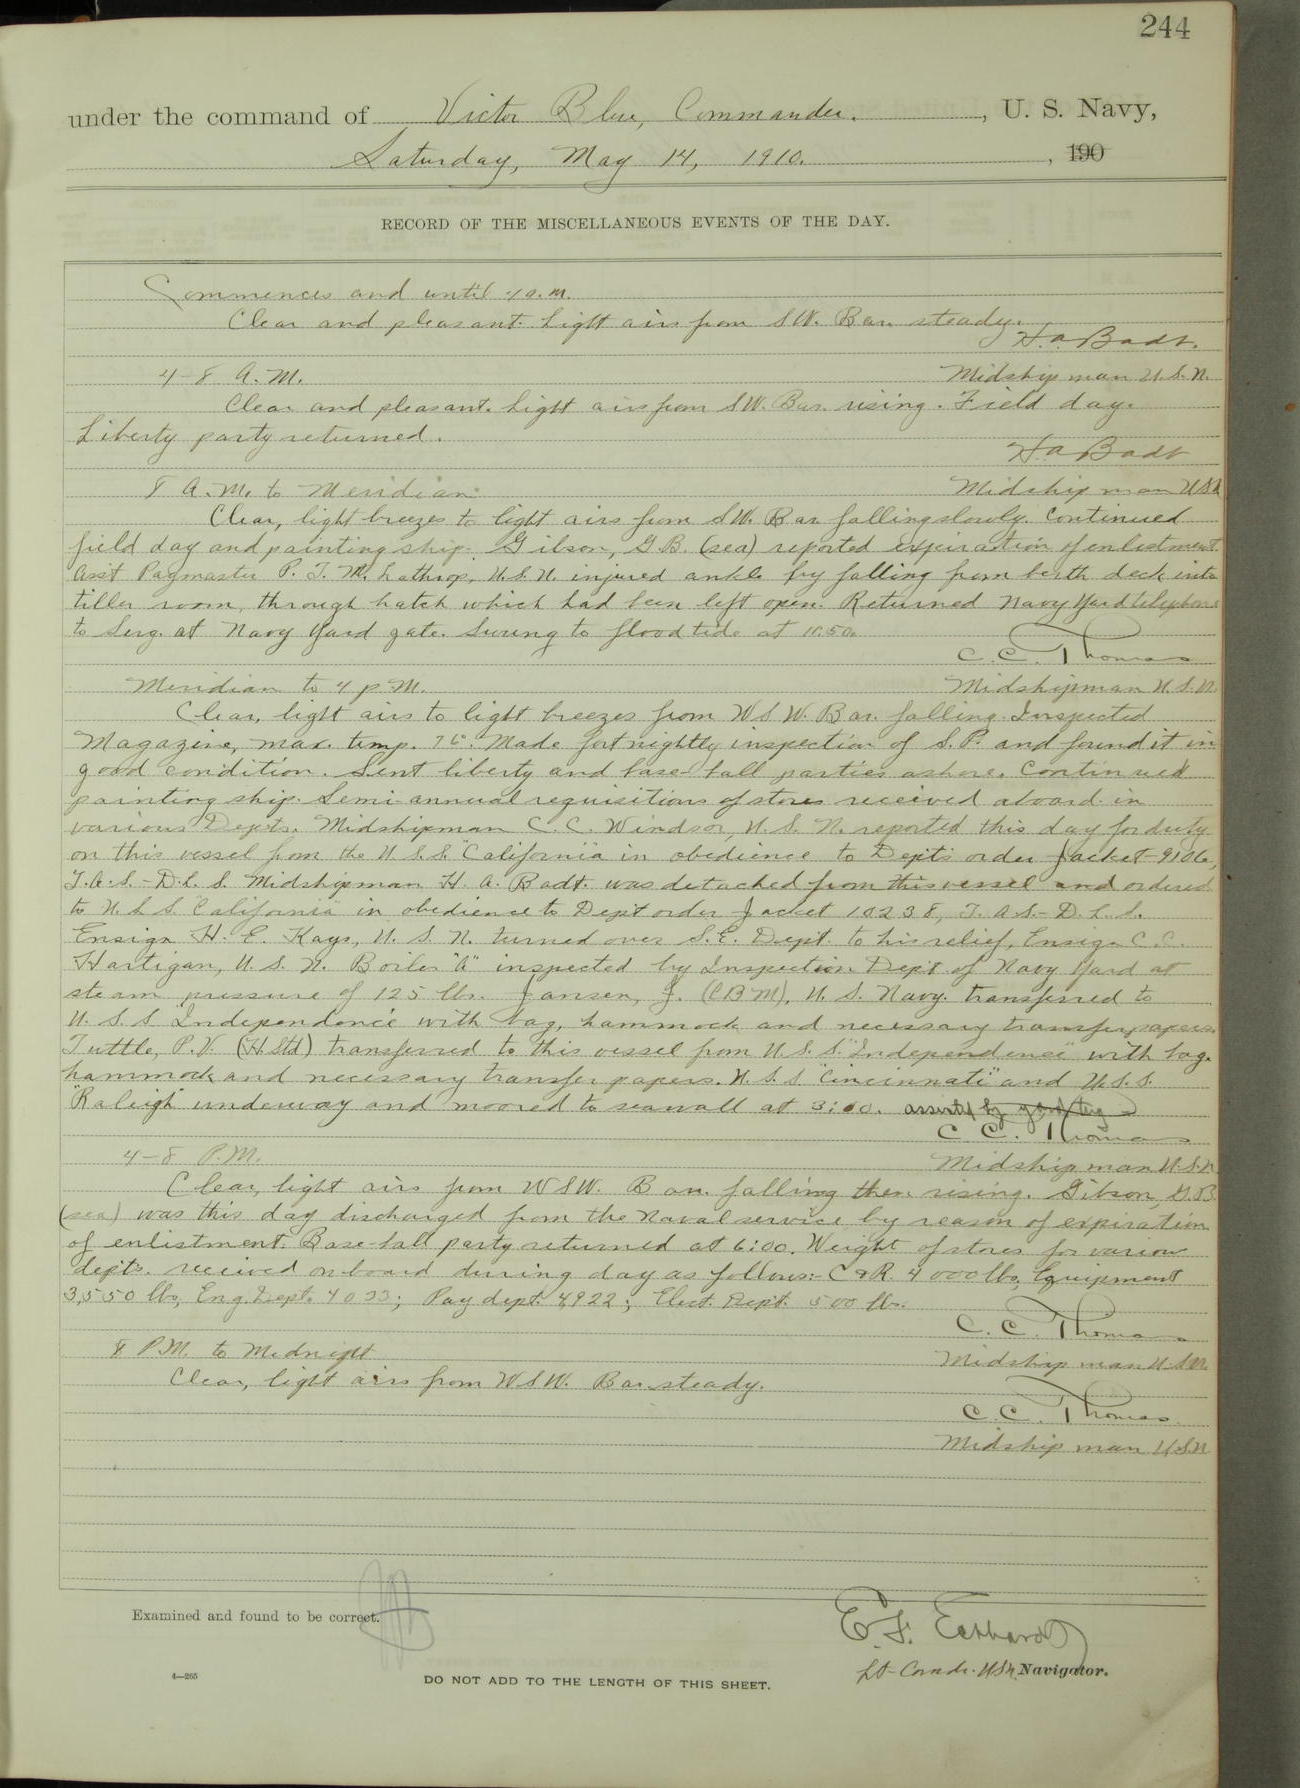 244
under the command of Victor Blue, Commander. , U. S. Navy,
Saturday, May 14, 1910. , 190
RECORD OF THE MISCELLANEOUS EVENTS OF THE DAY.
Commences and until 4 a.m.
Clear and pleasant. Light airs from SW. Bar. steady.
H. A. Badt.
4-8 A.M. Midshipman U.S.N.
Clear and pleasant. Light airs from SW. Bar. rising. Field day.
Liberty party returned.
H. A. Badt
8 A.M. to Meridian Midshipman USN
Clear, light breezes to light airs from SW. Bar. falling slowly. Continued
field day and painting ship. Gibson, G.B. (sea) reported expiration of enlistment.
Ass't Paymaster P. T. M. Lathrop, U.S.N. injured ankle by falling from berth deck into
tiller room, through hatch which had been left open. Returned Navy Yard telephone
to Serg. at Navy Yard gate. Swung to flood tide at 11:50.
C. C. Thomas
Meridian to 4 p.M. Midshipman U.S.N.
Clear, light airs to light breezes from WSW. Bar. falling. Inspected
Magazine, max. temp. Made fortnightly inspection of S.P. and found it in
good condition. Sent liberty and base-ball parties ashore. Continued
painting ship. Semi-annual requisitions of stores received aboard in
various Depts. Midshipman C. C. Windsor, U. S. N. reported this day for duty
on this vessel from the U.S.S. "California" in obedience to Dept's order Jacket-9106,
T.A.S.-D.L.S. Midshipman H. A. Badt. was detached from this vessel and ordered
to U.S.S. "California" in obedience to Dept order Jacket 10238, T.A.S.-D.L.S.
Ensign H. E. Kays, U. S. N. turned over S.E. Dept. to his relief, Ensign C.C.
Hartigan, U.S.N. Boiler "A" inspected by Inspection Dept. of Navy Yard at
steam pressure of 125 lbs. Jansen, J. (CBM), U. S. Navy. transferred to
U.S.S. Independence with bag, hammock and necessary transfer papers.
Tuttle, P.V. (H.Std) transferred to this vessel from U.S.S. "Independence" with bag.
hammock and necessary transfer papers. U.S.S. "Cincinnati" and U.S.S.
"Raleigh" underway and moored to seawall at 3:00. assisted by yard tug
C. C. Thomas
4-8 P.M. Midshipman U.S.N
Clear, light airs from WSW. Bar. falling then rising. Gibson, G.B.
(sea) was this day discharged from the Naval service by reason of expiration
of enlistment. Base-ball party returned at 6:00. Weight of stores for various
dept's. received on board during day as follows:- C & R. 4000 lbs, Equipment
3,550 lbs, Eng. Dept. 4033; Pay dept. 4,922; Elect. Dept. 500 lbs.
C. C. Thomas
8 P.M. to Midnight Midshipman U.S.N.
Clear, light airs from WSW. Bar. steady.
C. C. Thomas.
Midshipman U.S.N
Examined and found to be correct.
E. F. Eckhardt
Lt-Comdr. USN. Navigator.
4—265
DO NOT ADD TO THE LENGTH OF THIS SHEET.